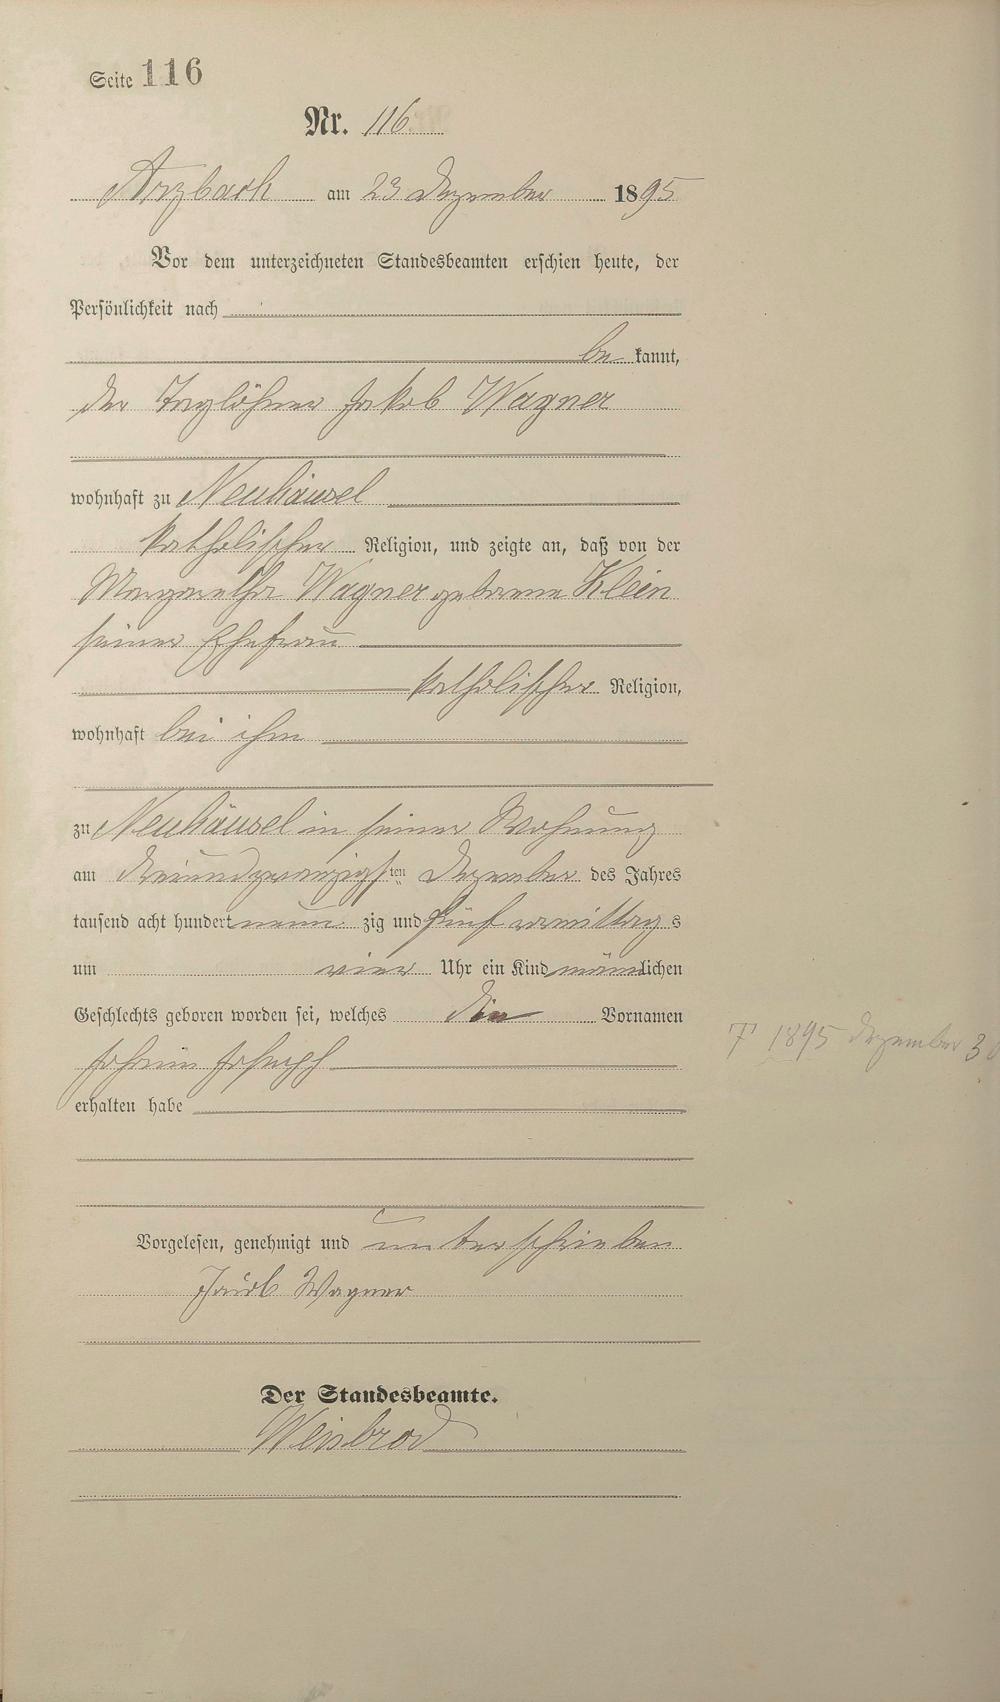 Seite 116
Nr. 116.
Arzbach am 23 Dezember 1895
Vor dem unterzeichneten Standesbeamten erschien heute, der
Persönlichkeit nach
be kannt,
der Taglöhner Jakob Wagner
wohnhaft zu Neuhäusel
katholischer Religion, und zeigte an, daß von der
Margaretha Wagner geborene Klein
seiner Ehefrau
katholischer Religion,
wohnhaft bei ihm
zu Neuhäusel in seiner Wohnung
am dreiundzwanzigsten Dezember des Jahres
tausend acht hundert neun zig und fünf vormittags
um vier Uhr ein Kind männlichen
Geschlechts geboren worden sei, welches die Vornamen
Johann Joseph
† 1895 Dezember 30
erhalten habe
Vorgelesen, genehmigt und unterschrieben
Jacob Wagner
Der Standesbeamte.
Weisbrod